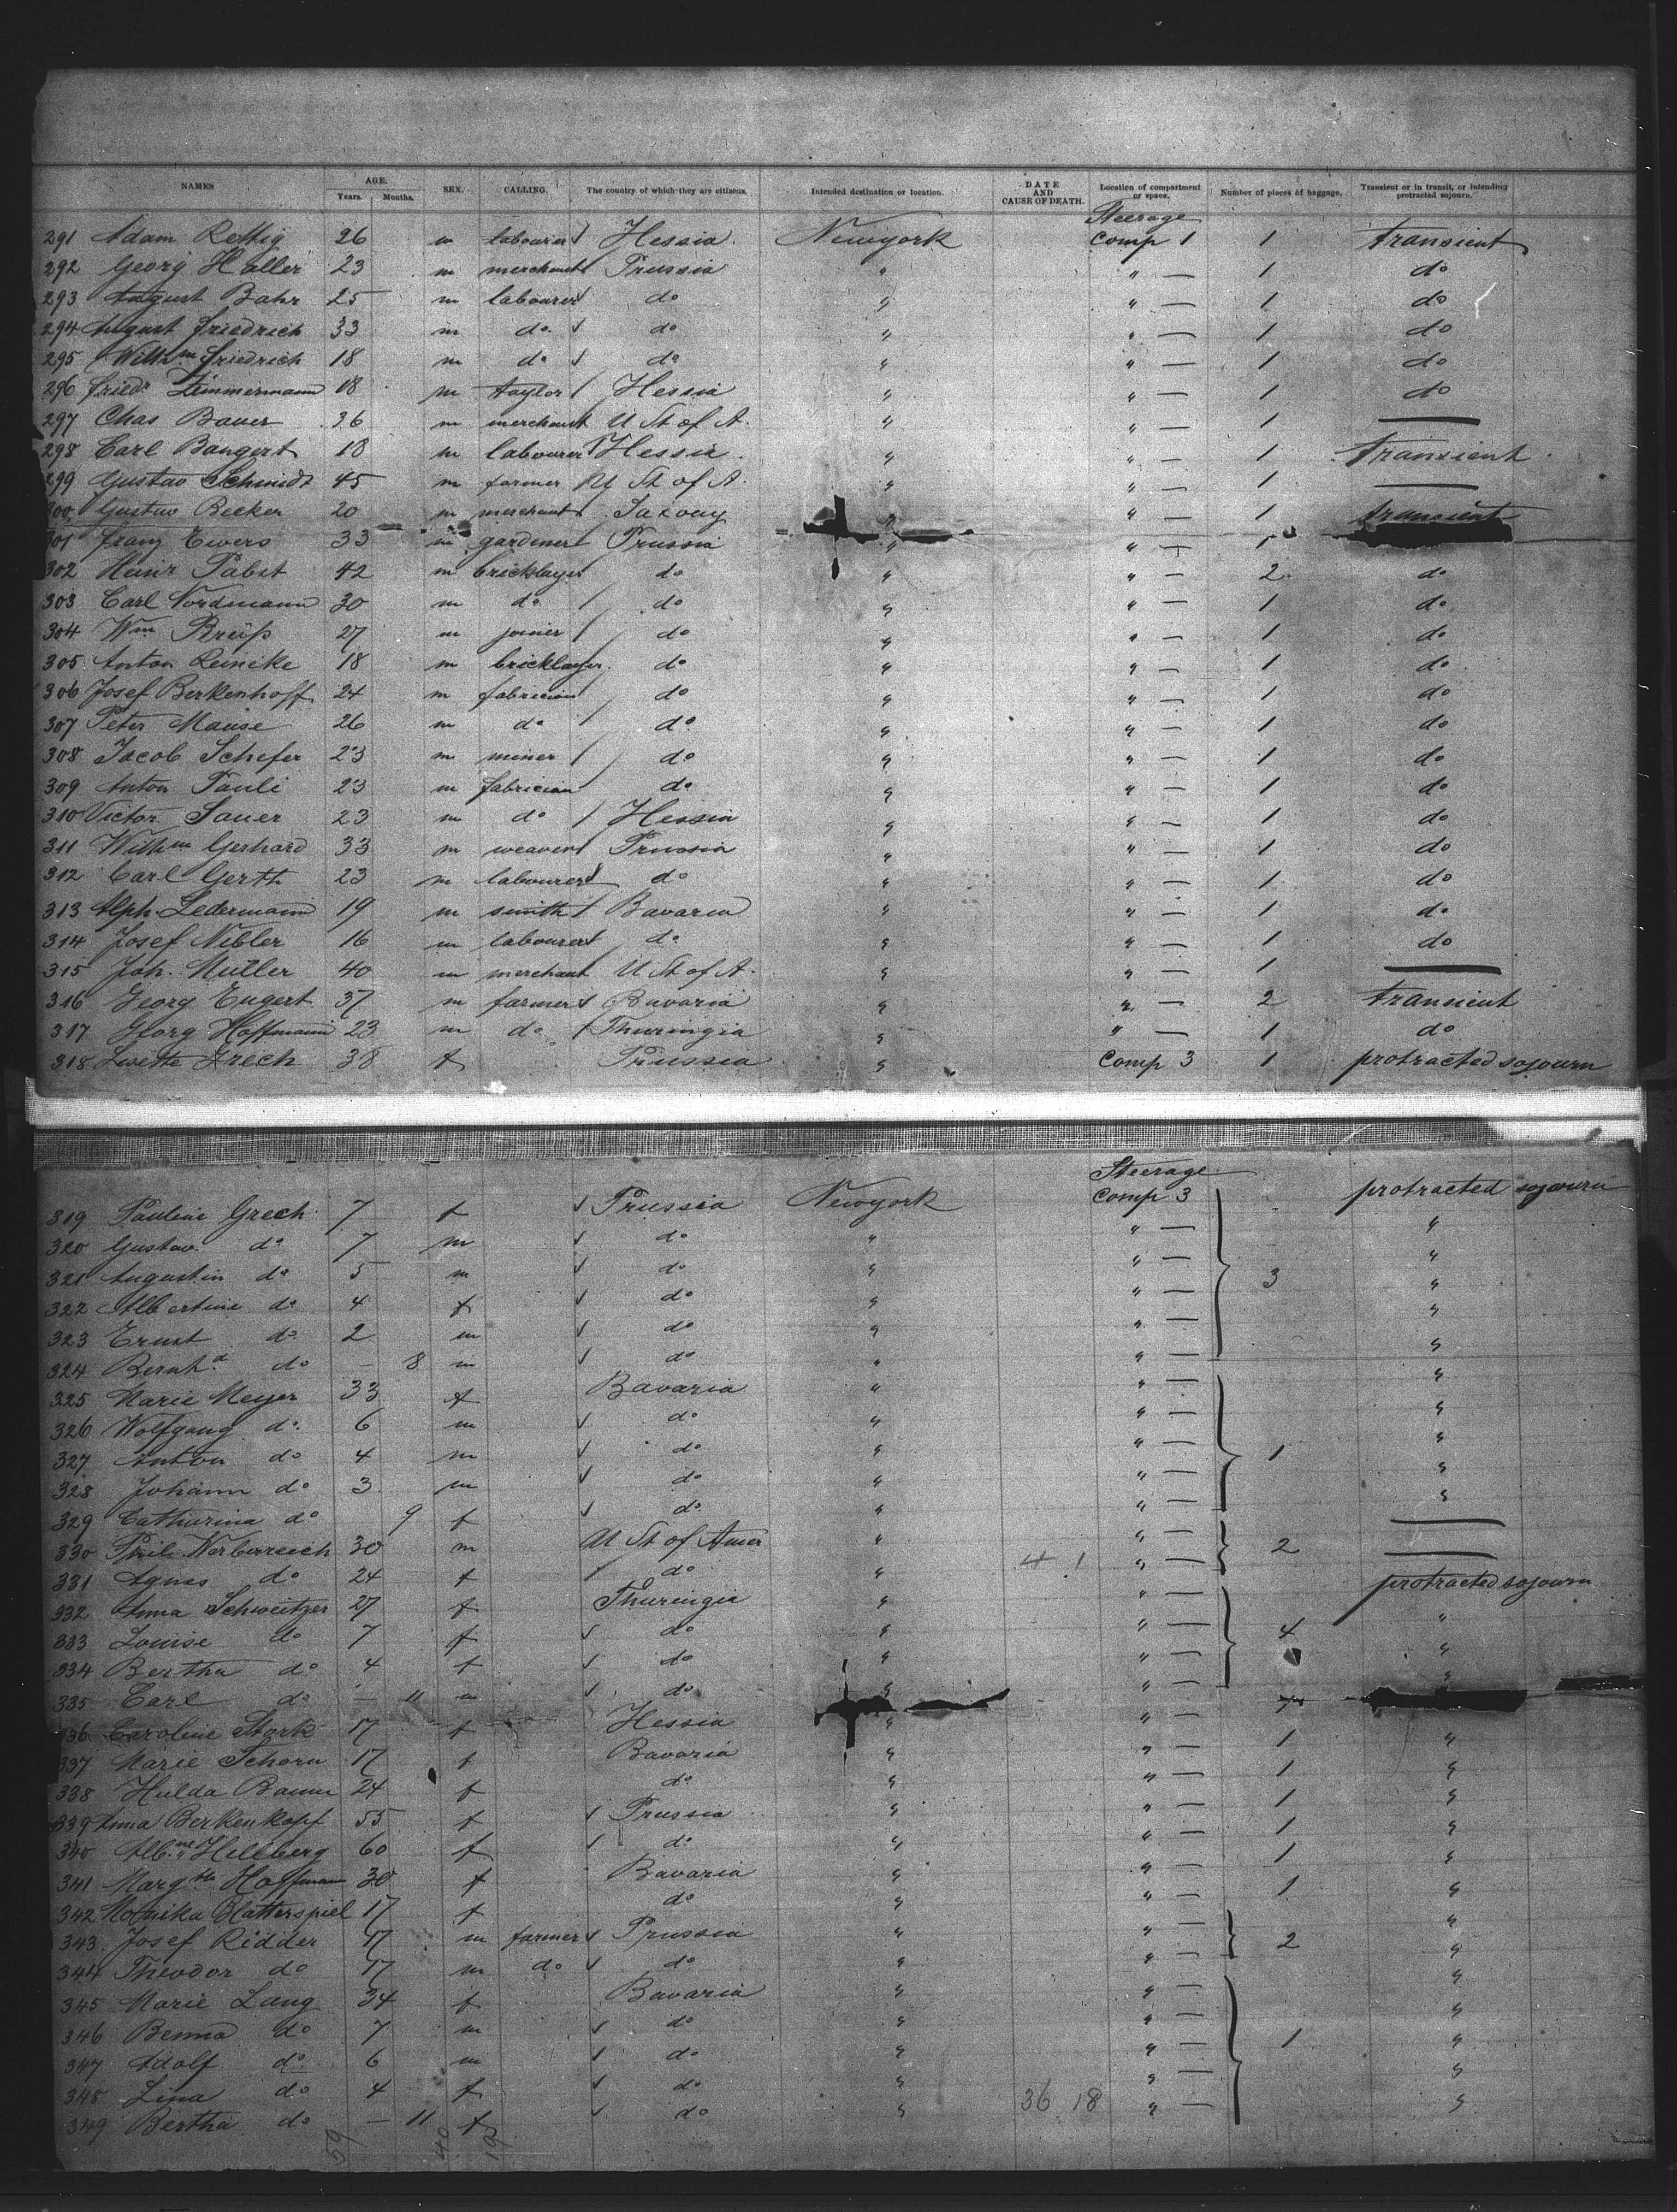 NAMES AGE. Years. Months. SEX. CALLING. The country of which they are citizens. Intended destination or location. DATE AND CAUSE OF DEATH. Location of compartment or space. Number of pieces of baggage. Transient or in transit, or intending protracted sojourn.
Steerage
291 Adam Rettig 26 m labourer Hessia. Newyork Comp 1 1 transient
292 Georg Haller 23 m merchant Prussia " " — 1 do
293 August Bahr 25 m labourer do " " — 1 do
294 August Friedrich 33 m do. do " " — 1 do
295 Willhm Friedrich 18 m do do " " — 1 do
296 Friedr Zimmermann 18 m taylor Hessia " " — 1 do
297 Chas Bauer 36 m merchant U St of A. " " — 1 —
298 Carl Bangert 18 m labourer Hessia. " " — 1 transient
299 Gustav Schmidt 45 m farmer U St of A. " " — 1 —
300 Gustav Becker 20 m merchant Saxony " " — 1 transient
301 Franz Ewers 33 m gardener Prussia " " — 1
302 Heinr Pabst 42 m bricklayer do " " — 2 do
303 Carl Nordmann 30 m do do " " — 1 do
304 Wm Breüß 27 m joiner do " " — 1 do
305 Anton Reincke 18 m bricklayer. do " " — 1 do
306 Josef Berkenhoff 24 m fabrician do " " — 1 do
307 Peter Mause 26 m do do " " — 1 do
308 Jacob Schefer 23 m miner do " " — 1 do
309 Anton Pauli 23 m fabrician do " " — 1 do
310 Victor Sauer 23 m do Hessia " " — 1 do
311 Willhm Gerhard 33 m weaver Prussia " " — 1 do
312 Carl Gerth 23 m labourer do " " — 1 do
313 Alph. Ledermann 19 m smith Bavaria " " — 1 do
314 Josef Nibler 16 m labourer do " " — 1 do
315 Joh. Müller 40 m merchant U St of A. " " — 1 —
316 Georg Engert 37 m farmer Bavaria " " — 2 transient
317 Georg Hoffmann 23 m do. Thuringia " " — 1 do
318 Lisette Grech 38 f Prussia " Comp 3 1 protracted sojourn
Steerage
319 Pauline Grech 7 f Prussia Newyork Comp 3 protracted sojourn
320 Gustav do 7 m do " " — "
321 Augustin do 5 m do " " — 3 "
322 Albertine do 4 f do " " — "
323 Ernst do 2 m do " " — "
324 Bernhd do — 8 m do " " — "
325 Marie Meyer 33 f Bavaria " " — "
326 Wolfgang do 6 m do " " — "
327 Anton do 4 m do " " — 1 "
328 Johann do 3 m do " " — "
329 Catharina do 9 f do " " — "
330 Phil. 30 m U St of Amer " " — 2 —
331 Agnes do 24 f do " 4 1 " — —
332 Anna Schweitzer 27 f Thuringia " " — protracted sojourn
333 Louise do 7 f do " " — 4 "
334 Bertha do 4 f do " " — "
335 Carl do — 11 m do " " — "
336 Caroline Stark 17 f Hessia " " — 1
337 Marie Schorn 17 f Bavaria " " — 1 "
338 Hulda Baum 24 f do " " — 1 "
339 Anna Berkenkopf 55 f Prussia " " — 1 "
340 Albne Hillberg 60 f do " " — 1 "
341 Margthe Hoffmann 30 f Bavaria " " — 1 "
342 Monika Blatterspiel 17 f do " " — 1 "
343 Josef Ridder 17 m farmer Prussia " " — 2 "
344 Theodor do 17 m do do " " — "
345 Marie Lang 34 f Bavaria " " — "
346 Benno do 7 m do " " — "
347 Adolf do 6 m do " " — 1 "
348 Lina do 4 f do " " — "
349 Bertha do — 11 f do " 36 18 " — "
59 40 19